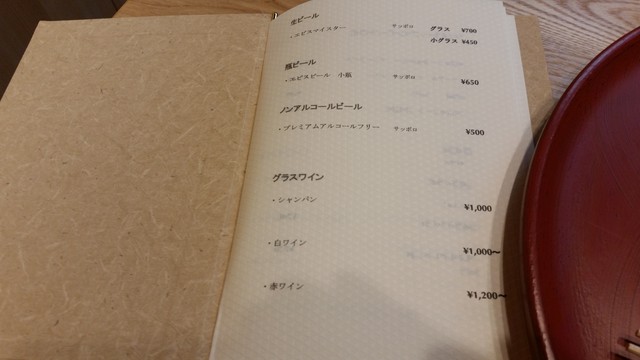 生ビール
・ヱビスマイスター サッポロ グラス ¥700
小グラス ¥450
瓶ビール
・ヱビスビール 小瓶 サッポロ ¥650
ノンアルコールビール
・プレミアムアルコールフリー サッポロ ¥500
グラスワイン
・シャンパン ¥1,000
・白ワイン ¥1,000〜
・赤ワイン ¥1,200〜